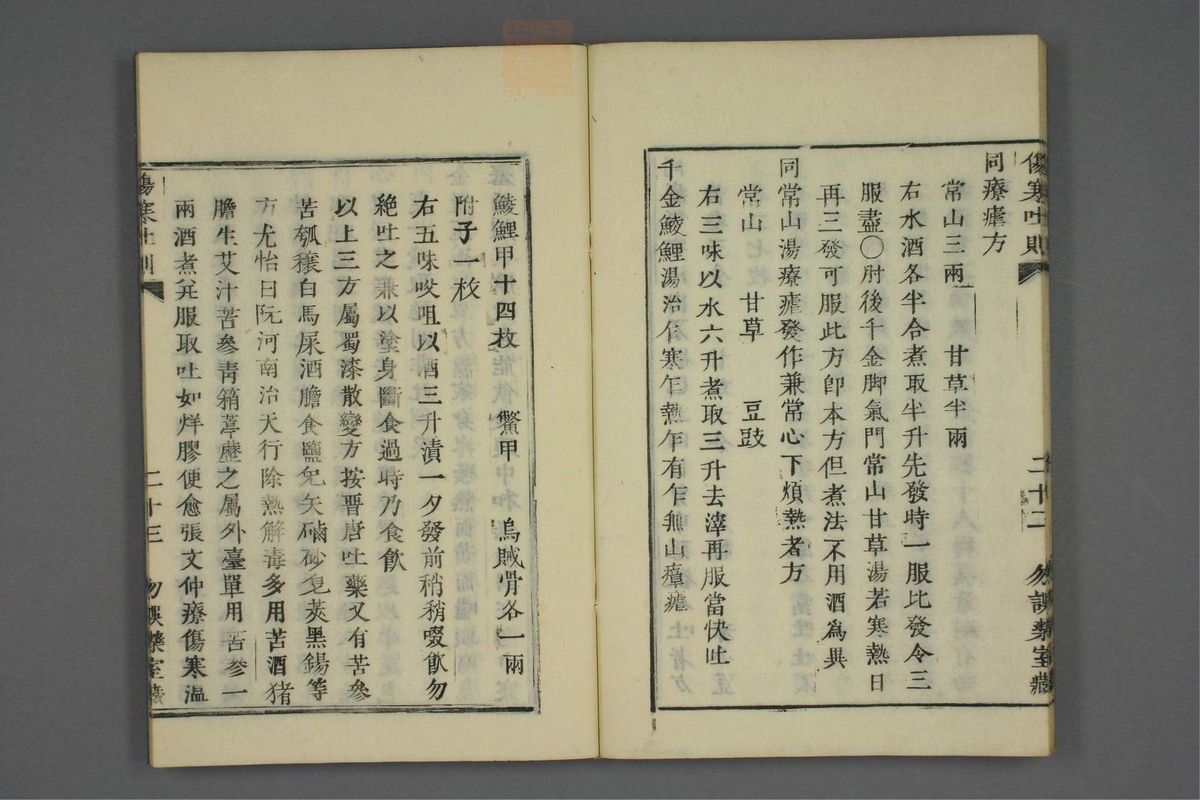 傷寒吐則
二十二
勿誤藥室藏
同療瘧方
常山三兩 甘草半兩
右水酒各半合煮取半升先發時一服比發令三
服盡〇肘後千金脚氣門常山甘草湯若寒熱日
再三發可服此方卽本方但煮法不用酒爲異
同常山湯療瘧發作兼常心下煩熱者方
常山 甘草 豆豉
右三味以水六升煮取三升去滓再服當快吐
千金鯪鯉湯治乍寒乍熱乍有乍無山瘴瘧
鯪鯉甲十四枚 鱉甲 烏賊骨各一兩
附子一枚
右五味㕮咀以酒三升漬一夕發前稍稍啜飮勿
絶吐之兼以塗身斷食過時乃食飮
以上三方屬蜀漆散變方按晋唐吐藥又有苦參
苦瓠穰白馬屎酒膽食鹽兒矢硇砂皂莢黑錫等
方尤怡曰阮河南治天行除熱解毒多用苦酒猪
膽生艾汁苦參靑箱葶藶之屬外臺單用苦參一
兩酒煮幷服取吐如烊膠便愈張文仲療傷寒溫
傷寒吐則
二十三
勿誤藥室藏